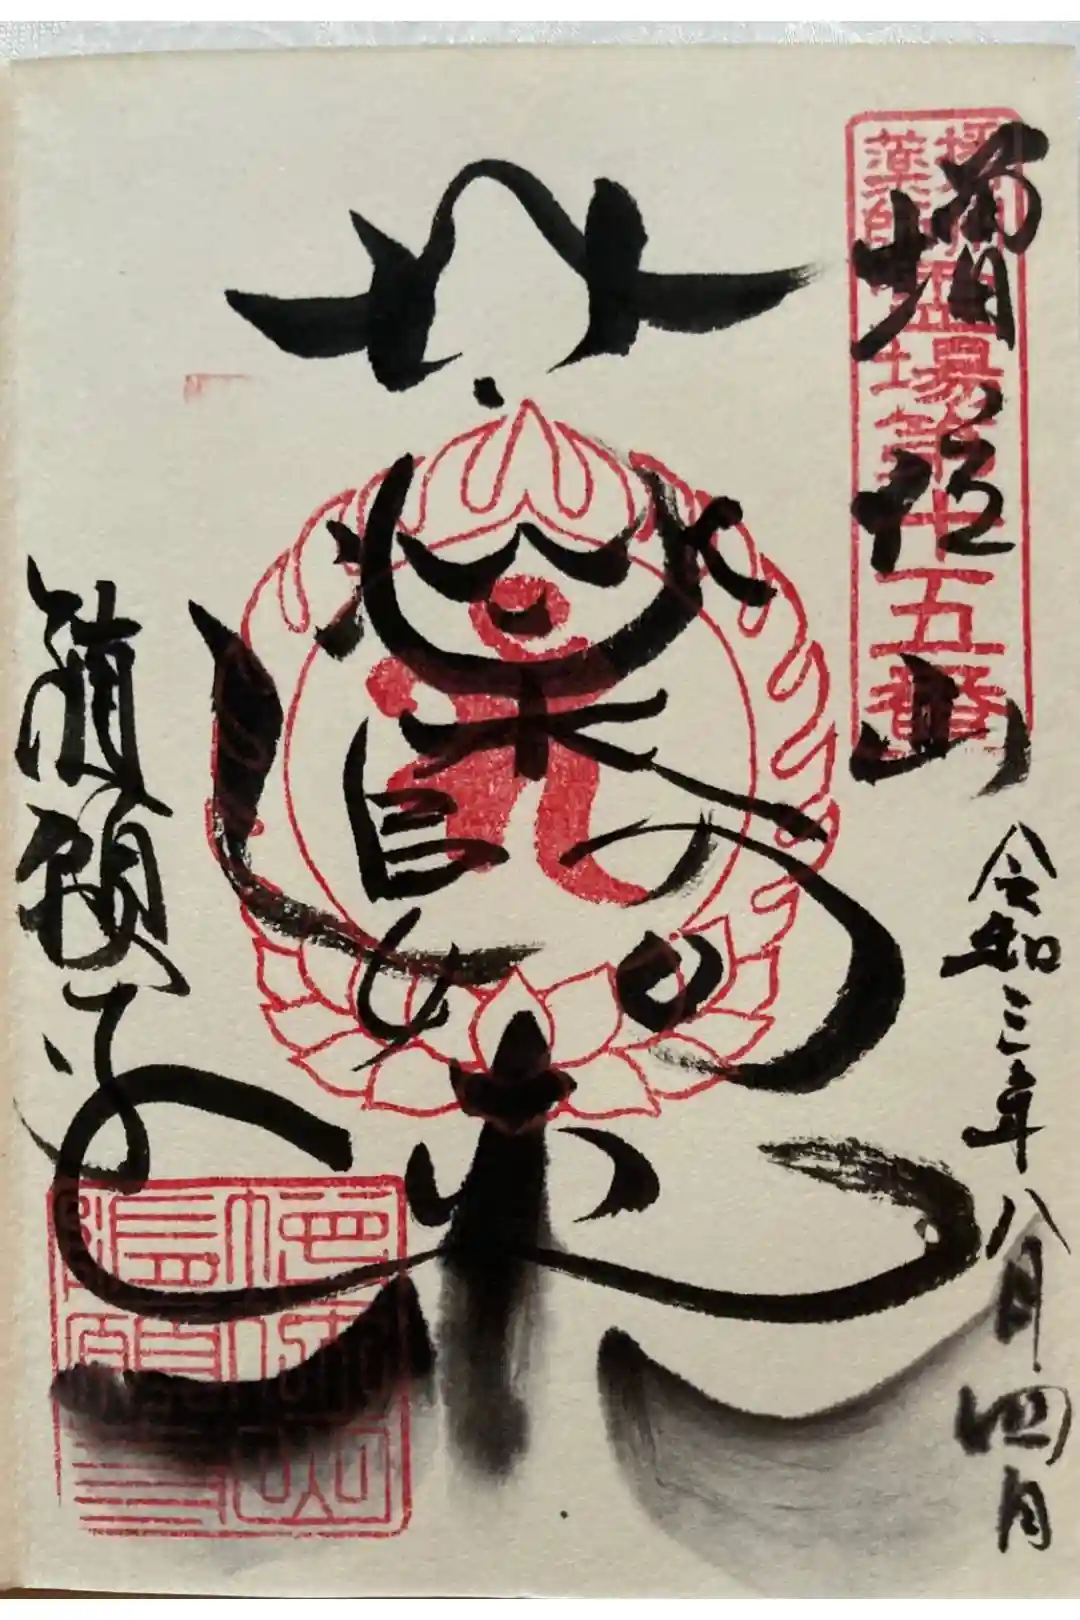 播州薬師霊場第十五番
増位山
令和三年八月四日
薬師如来
随願寺